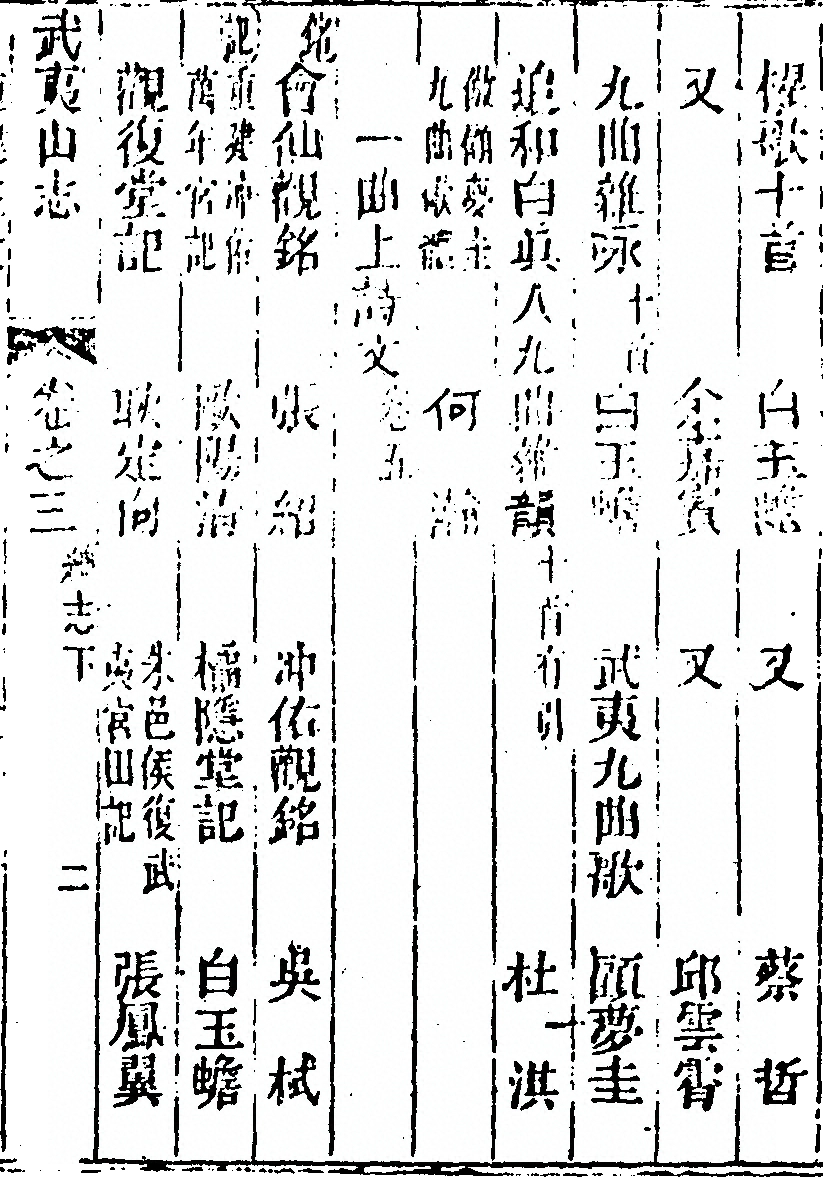 櫂歌十首　白玉蟾　又　蔡哲
又　余嘉賓　又　邱雲霄
九曲雜詠十首　白玉蟾　武夷九曲歌　顧夢圭
追和白眞人九曲雜韻十首有引　杜洪
倣顧夢圭九曲歌體　何瀚
一曲上詩文卷五
銘
會仙觀銘　張紹　冲佑觀銘　吳栻
記
重建冲佑萬年宮記　歐陽　橘隱堂記　白玉蟾
觀復堂記　耿定向　朱邑侯復武夷宮田記　張鳳翼
武夷山志　卷之三　下　二